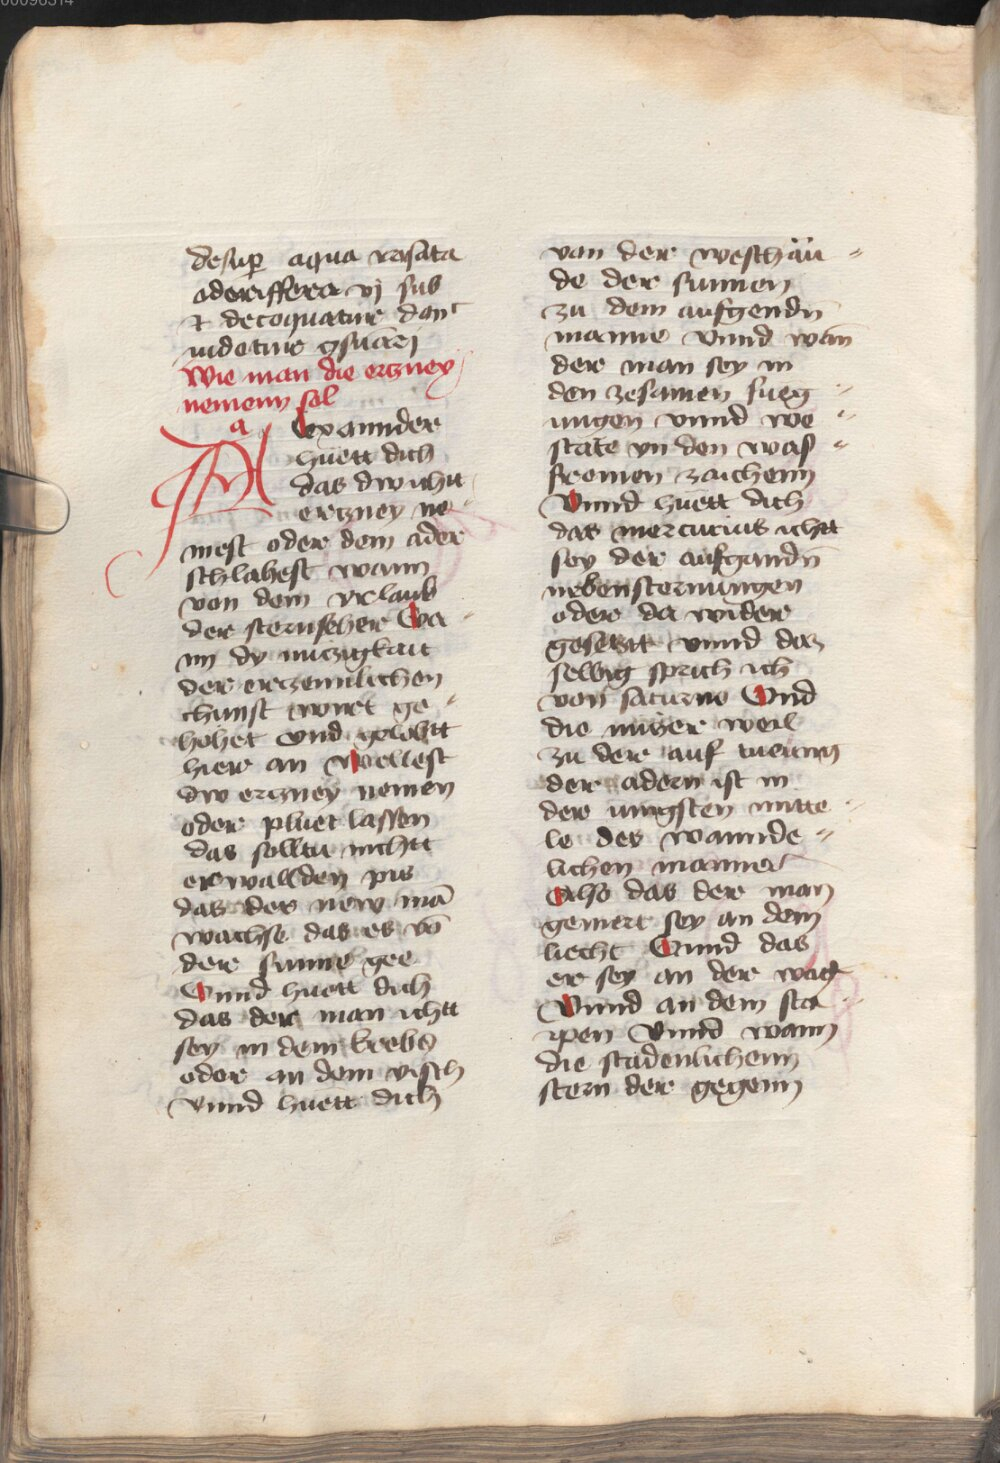 00096314
desup aqua rosata
oderiffera vj sub
et decoquatur don
videtur gsuarj
Wie man die ertzney
nemenn sol
Alexannder
huett dich
das dw icht
ertzney ne
mest oder dem ader
schlahest wann
von dem vrlaub
der sternseher Wa
nn dy nuczigkait
der erczennlichen
chunst wirt ge
hohet vnd gelobtt
hier an Wellest
dw ertzney nemen
oder pluet lassen
das solltu nichtt
erwallden pis
das der new mā
wachse das es vō
der sunne gee
Vnnd huett dich
das der man ichtt
sey in dem krebs
oder an dem visch
vnnd huett dich
von der weschäu
de der sunnen
zu dem aufgendn
manne vnnd wan
der man sey in
den zesamen fueg
ungen vnnd we
state yn den was
fremen zaichenn
Vnnd huett dich
das mercurius ichtt
sey der aufgandn
nebensternungen
oder da wider
gesetztt vnnd daz
selbig sprich ich
von saturno Vnd
die nutzer weil
zu der auf tueung
der adern ist in
der iungsten mitte
le des wannde
lichen mannes
Also das der man
gemert sey an dem
liecht Vnnd das
er sey an der wag
Vnnd an dem sco
rpen Vnnd wann
die stadenlichenn
stern der gegenn